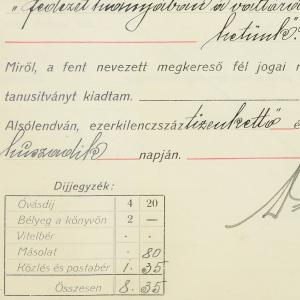 „fedezet hiányában a váltóról
hetünk".
Miről, a fent nevezett megkereső fél jogai
tanusítványt kiadtam.
Alsólendván, ezerkilencszáz tizenkettő é
huszadik napján.
Díjjegyzék:
Óvásdíj 4 20
Bélyeg a könyvön 2 —
Vitelbér . .
Másolat . 80
Közlés és postabér 1. 35
Összesen 8. 35